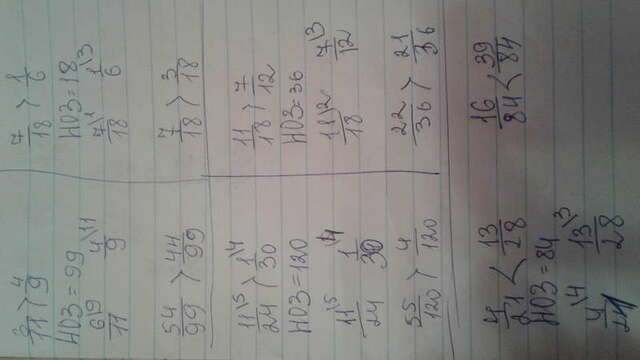 6/11 > 4/9
НОЗ = 99
6\9/11 4\11/9
54/99 > 44/99
7/18 > 1/6
НОЗ = 18
7\1/18 1\3/6
7/18 > 3/18
11\5/24 > 1\4/30
НОЗ = 120
11\5/24 1\4/30
55/120 > 4/120
11/18 > 7/12
НОЗ = 36
11\2/18 7\3/12
22/36 > 21/36
4/21 < 13/28
НОЗ = 84
4\4/21 13\3/28
16/84 < 39/84